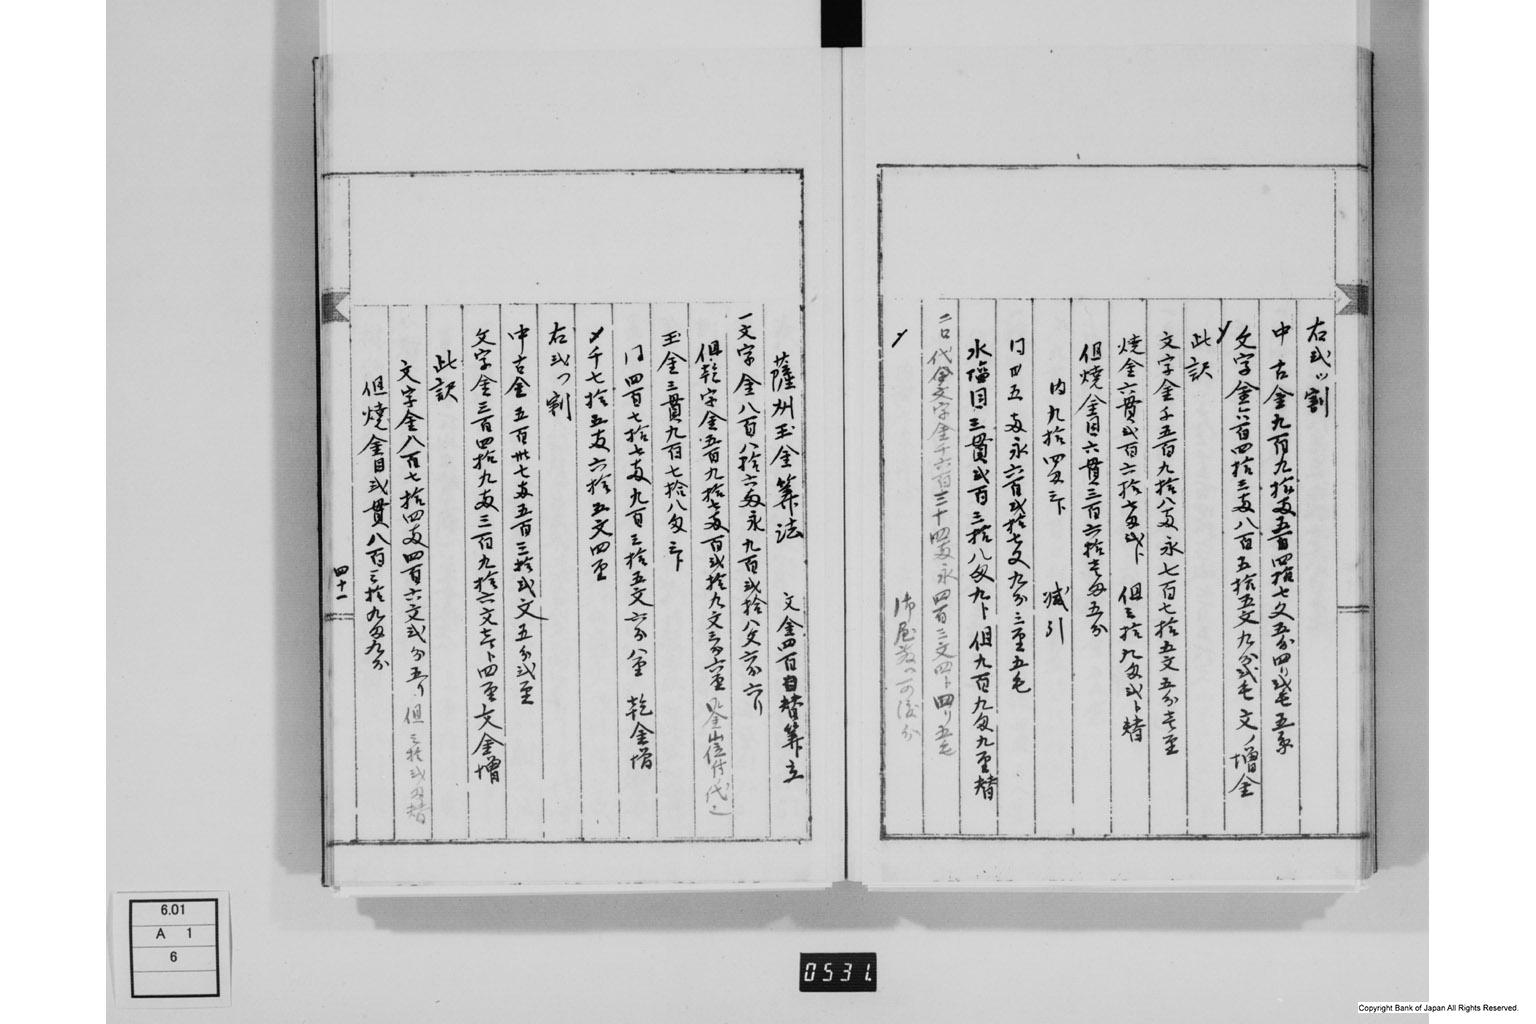 右弐ッ割
中古金九百九拾両五百四拾七文五分四り弐毛五糸
〆文字金六百四拾三両八百五拾五文九分弐毛 文ノ増金
此訳
文字金千五百九拾八両 永七百七拾五文五分壱厘
焼金六貫弐百六拾七匁弐ト 但三拾九匁弐ト替
但焼金目六貫三百六拾壱匁五分
内九拾四匁三ト 減引
〆四五両永六百弐拾七文九分三厘五毛
水塩目三貫弐百三拾八匁九ト 但九百九匁九厘替
二口代文字金千六百三十四両永四百三文四ト四り五毛
〆
薩州玉金筭法 文金四百目替筭立
一文字金八百八拾六両永九百弐拾八文六分六り
但乾字金五百九拾七両百弐拾九文三分六厘
玉金三貫九百七拾八匁三ト
〆四百七拾七両九百三拾五文六分八厘 乾金増
〆千七拾五両六拾五文四厘
右弐つ割
中古金五百卅七両五百三拾弐文五分弐厘
文字金三百四拾九両三百九拾六文壱ト四厘 文金増
此訳
文字金八百七拾四両四百六文弐分五り 但三拾弐匁替
但焼金目弐貫八百三拾九匁九分
四十一
6.01
A 1
6
0531.
Copyright Bank of Japan All Rights Reserved.